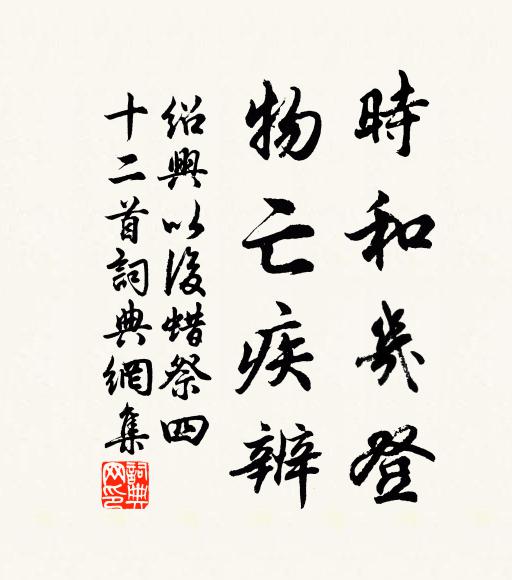 時和歲登
物亡疾辨
紹興以後蜡祭四
十二首詞典網集
詞典網印